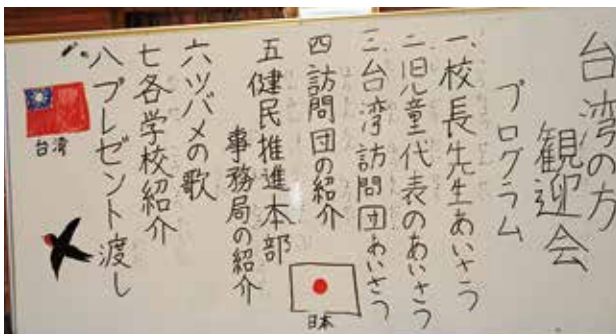 台湾の方
観迎会
プログラム
一、校長先生あいさつ
二、児童代表のあいさつ
三、台湾訪問団あいさつ
四 訪問団の紹介
五 健民推進本部
事務局の紹介
六 ツバメの歌
七 各学校紹介
八 プレゼント渡し
日本
台湾